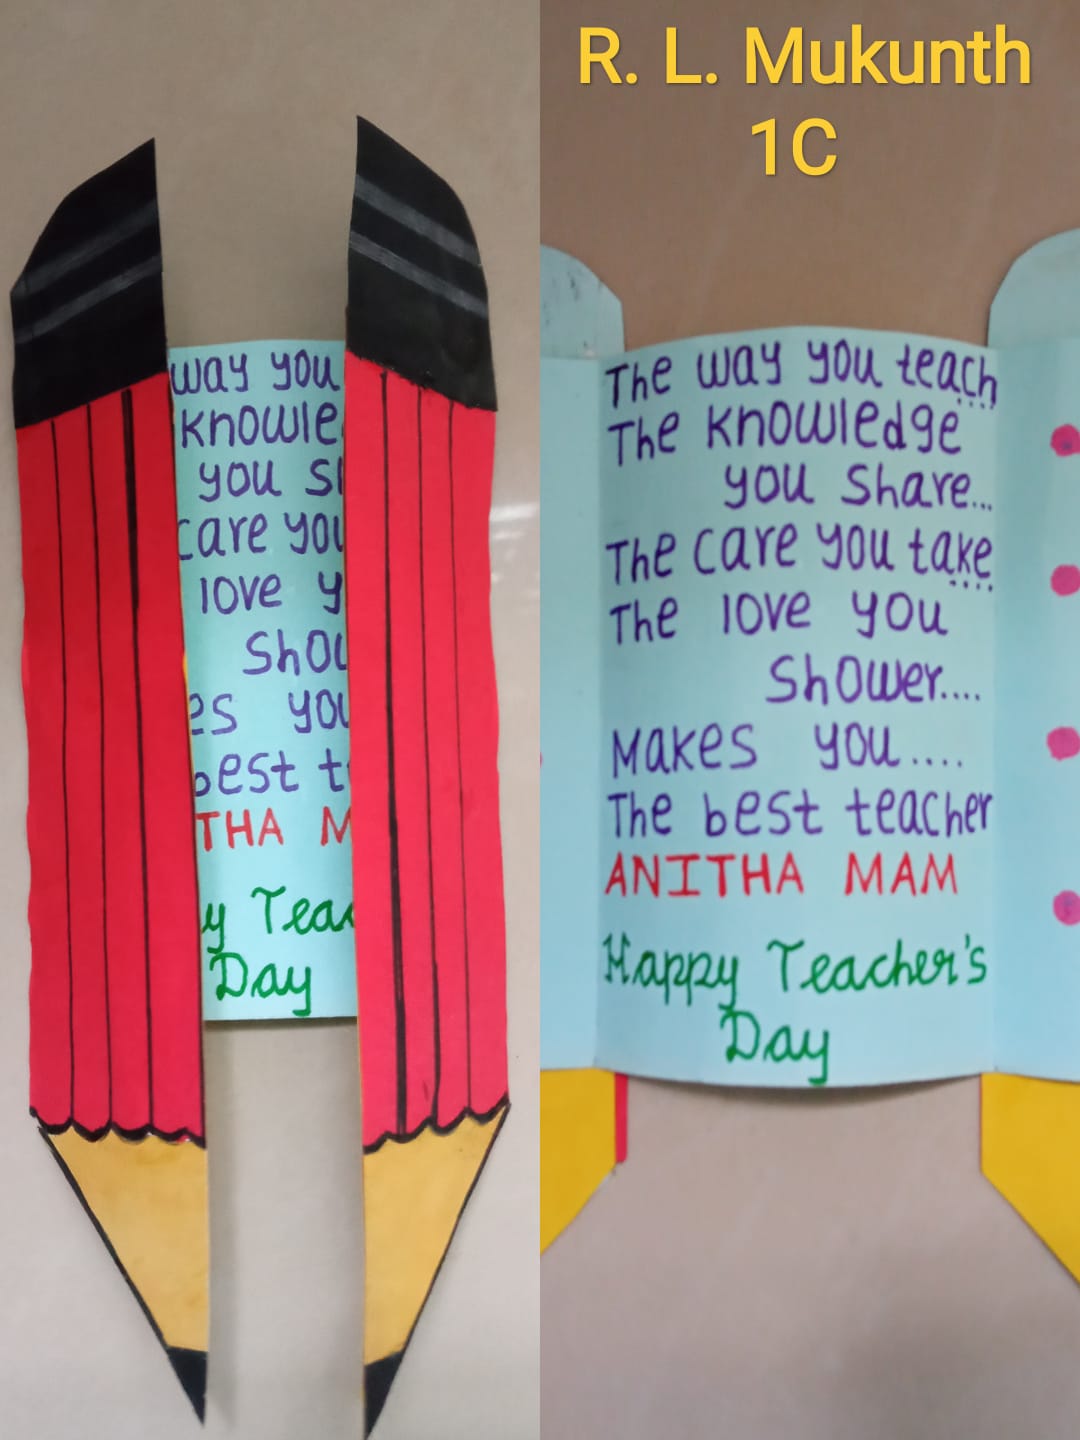 way you
knowle
you s
care you
love y
Shou
es you
best t
THA M
y Teac
Day
R. L. Mukunth
1C
The way you teach...
The knowledge
you share...
The care you take....
The love you
Shower....
Makes you....
The best teacher
ANITHA MAM
Happy Teacher's
Day